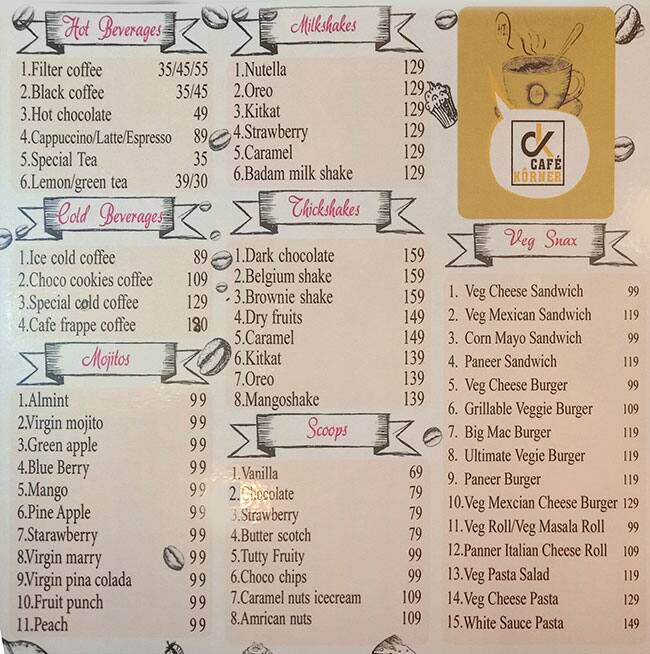 Hot Beverages
1.Filter coffee 35/45/55
2.Black coffee 35/45
3.Hot chocolate 49
4.Cappuccino/Latte/Espresso 89
5.Special Tea 35
6.Lemon/green tea 39/30
Cold Beverages
1.Ice cold coffee 89
2.Choco cookies coffee 109
3.Special cold coffee 129
4.Cafe frappe coffee
Mojitos
1.Almint 99
2.Virgin mojito 99
3.Green apple 99
4.Blue Berry 99
5.Mango 99
6.Pine Apple 99
7.Starawberry 99
8.Virgin marry 99
9.Virgin pina colada 99
10.Fruit punch 99
11.Peach 99
Milkshakes
1.Nutella 129
2.Oreo 129
3.Kitkat 129
4.Strawberry 129
5.Caramel 129
6.Badam milk shake 129
Thickshakes
1.Dark chocolate 159
2.Belgium shake 159
3.Brownie shake 159
4.Dry fruits 149
5.Caramel 149
6.Kitkat 139
7.Oreo 139
8.Mangoshake 139
Scoops
1.Vanilla 69
2.Chocolate 79
3.Strawberry 79
4.Butter scotch 79
5.Tutty Fruity 99
6.Choco chips 99
7.Caramel nuts icecream 109
8.Amrican nuts 109
CK
CAFÉ
KÖRNER
Veg Snax
1. Veg Cheese Sandwich 99
2. Veg Mexican Sandwich 119
3. Corn Mayo Sandwich 99
4. Paneer Sandwich 119
5. Veg Cheese Burger 99
6. Grillable Veggie Burger 109
7. Big Mac Burger 119
8. Ultimate Vegie Burger 119
9. Paneer Burger 119
10.Veg Mexcian Cheese Burger 129
11.Veg Roll/Veg Masala Roll 99
12.Panner Italian Cheese Roll 109
13.Veg Pasta Salad 119
14.Veg Cheese Pasta 129
15.White Sauce Pasta 149